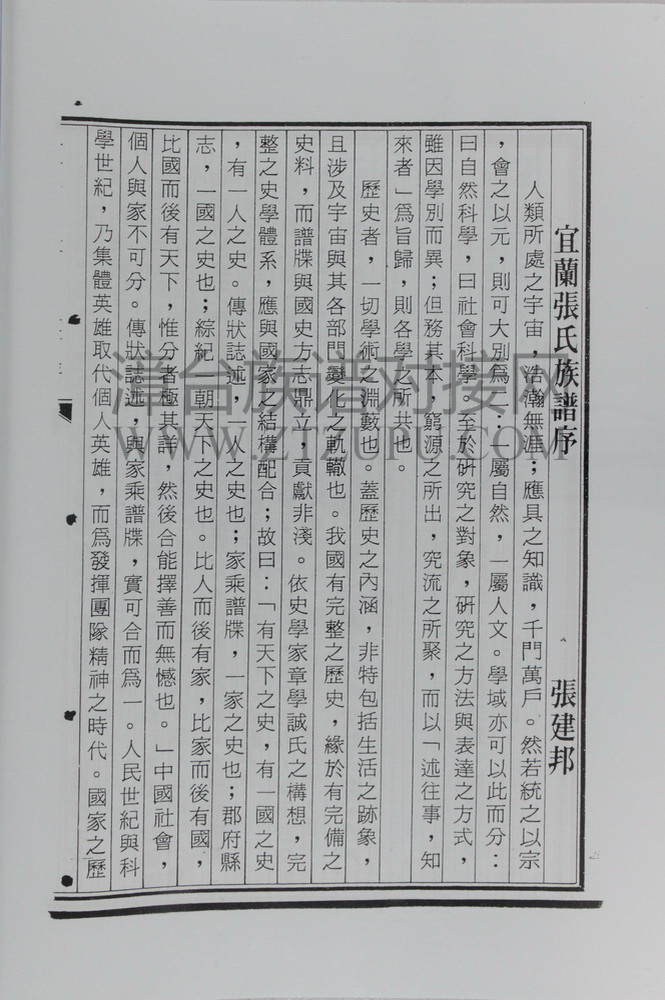 宜蘭張氏族譜序
張建邦
人類所處之宇宙，浩瀚無涯；應具之知識，千門萬戶。然若統之以宗
，會之以元，則可大別爲二：一屬自然，一屬人文。學域亦可以此而分：
曰自然科學，曰社會科學。至於硏究之對象，硏究之方法與表達之方式，
雖因學別而異；但務其本，窮源之所出，究流之所聚，而以「述往事，知
來者」爲旨歸，則各學之所共也。
歷史者，一切學術之淵藪也。蓋歷史之內涵，非特包括生活之跡象，
且涉及宇宙與其各部門變化之軌轍也。我國有完整之歷史，緣於有完備之
史料，而譜牒與國史方志鼎立，貢獻非淺。依史學家章學誠氏之構想，完
整之史學體系，應與國家之結構配合；故曰：「有天下之史，有一國之史
，有一人之史。傳狀誌述，一人之史也；家乘譜牒，一家之史也；郡府縣
志，一國之史也；綜紀一朝天下之史也。比人而後有家，比家而後有國，
比國而後有天下，惟分者極其詳，然後合能擇善而無憾也。」中國社會，
個人與家不可分。傳狀誌述，與家乘譜牒，實可合而爲一。人民世紀與科
學世紀，乃集體英雄取代個人英雄，而爲發揮團隊精神之時代。國家之歷
漳台族谱对接网
WWW.ZTZUPU.COM